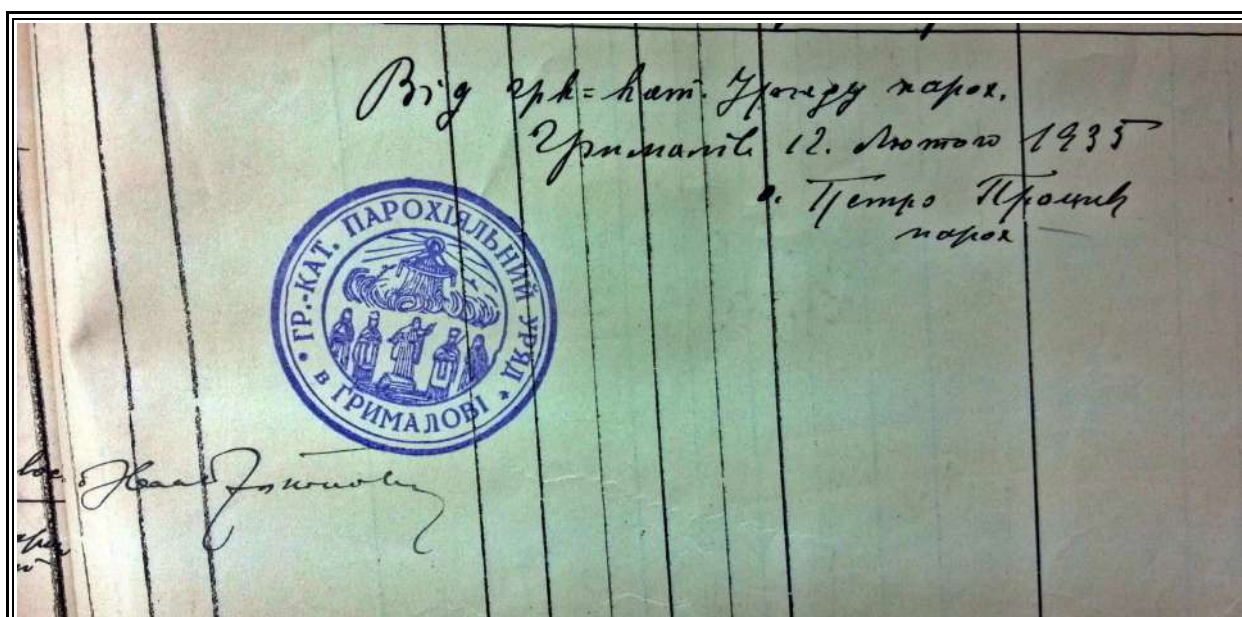 Від грк=кат. Уряду парох.
Грималів 12. Лютого 1935
о. Петро Процик
парох
• ГР.-КАТ. ПАРОХІЯЛЬНИЙ УРЯД •
в ГРИМАЛОВІ
Іван